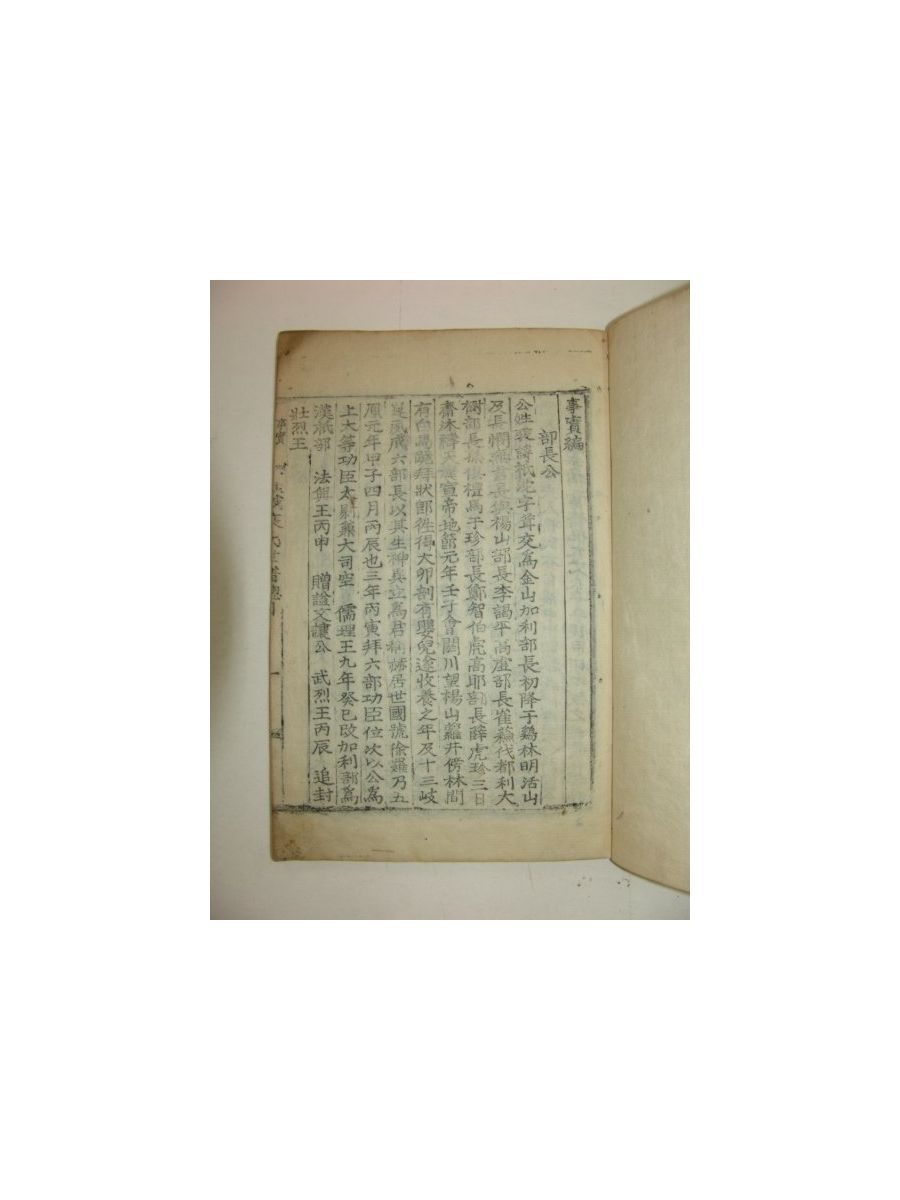 事實編
部長公
公姓裵諱祇沱字聳交爲金山加利部長初降于鷄林明活山
及長與楊山部長李謁平高虛部長崔蘓伐都利大
樹部長俱檀馬于珍部長鄭智伯虎高耶部長薛虎珍三日
齋沐禱天漢宣帝地節元年壬子會閼川望楊山蘿井傍林間
有白馬跪拜狀卽徃得大卵剖有嬰兒遂收養之年及十三岐
嶷夙成六部長以其生神異立爲君稱赫居世國號徐羅乃五
鳳元年甲子四月丙辰也三年丙寅拜六部功臣位次以公爲
上大等功臣太尉兼大司空 儒理王九年癸巳改加利部爲
漢祇部 法興王丙申 贈諡文讓公 武烈王丙辰 追封
壯烈王
事實 世譜總